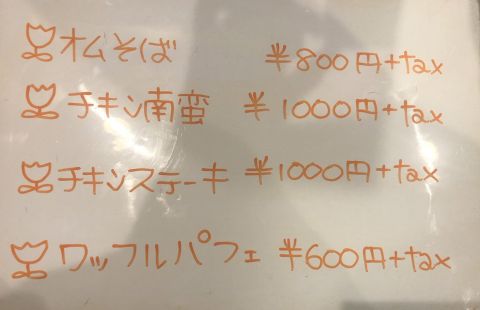 オムそば ¥800円+tax
チキン南蛮 ¥1000円+tax
チキンステーキ ¥1000円+tax
ワッフルパフェ ¥600円+tax